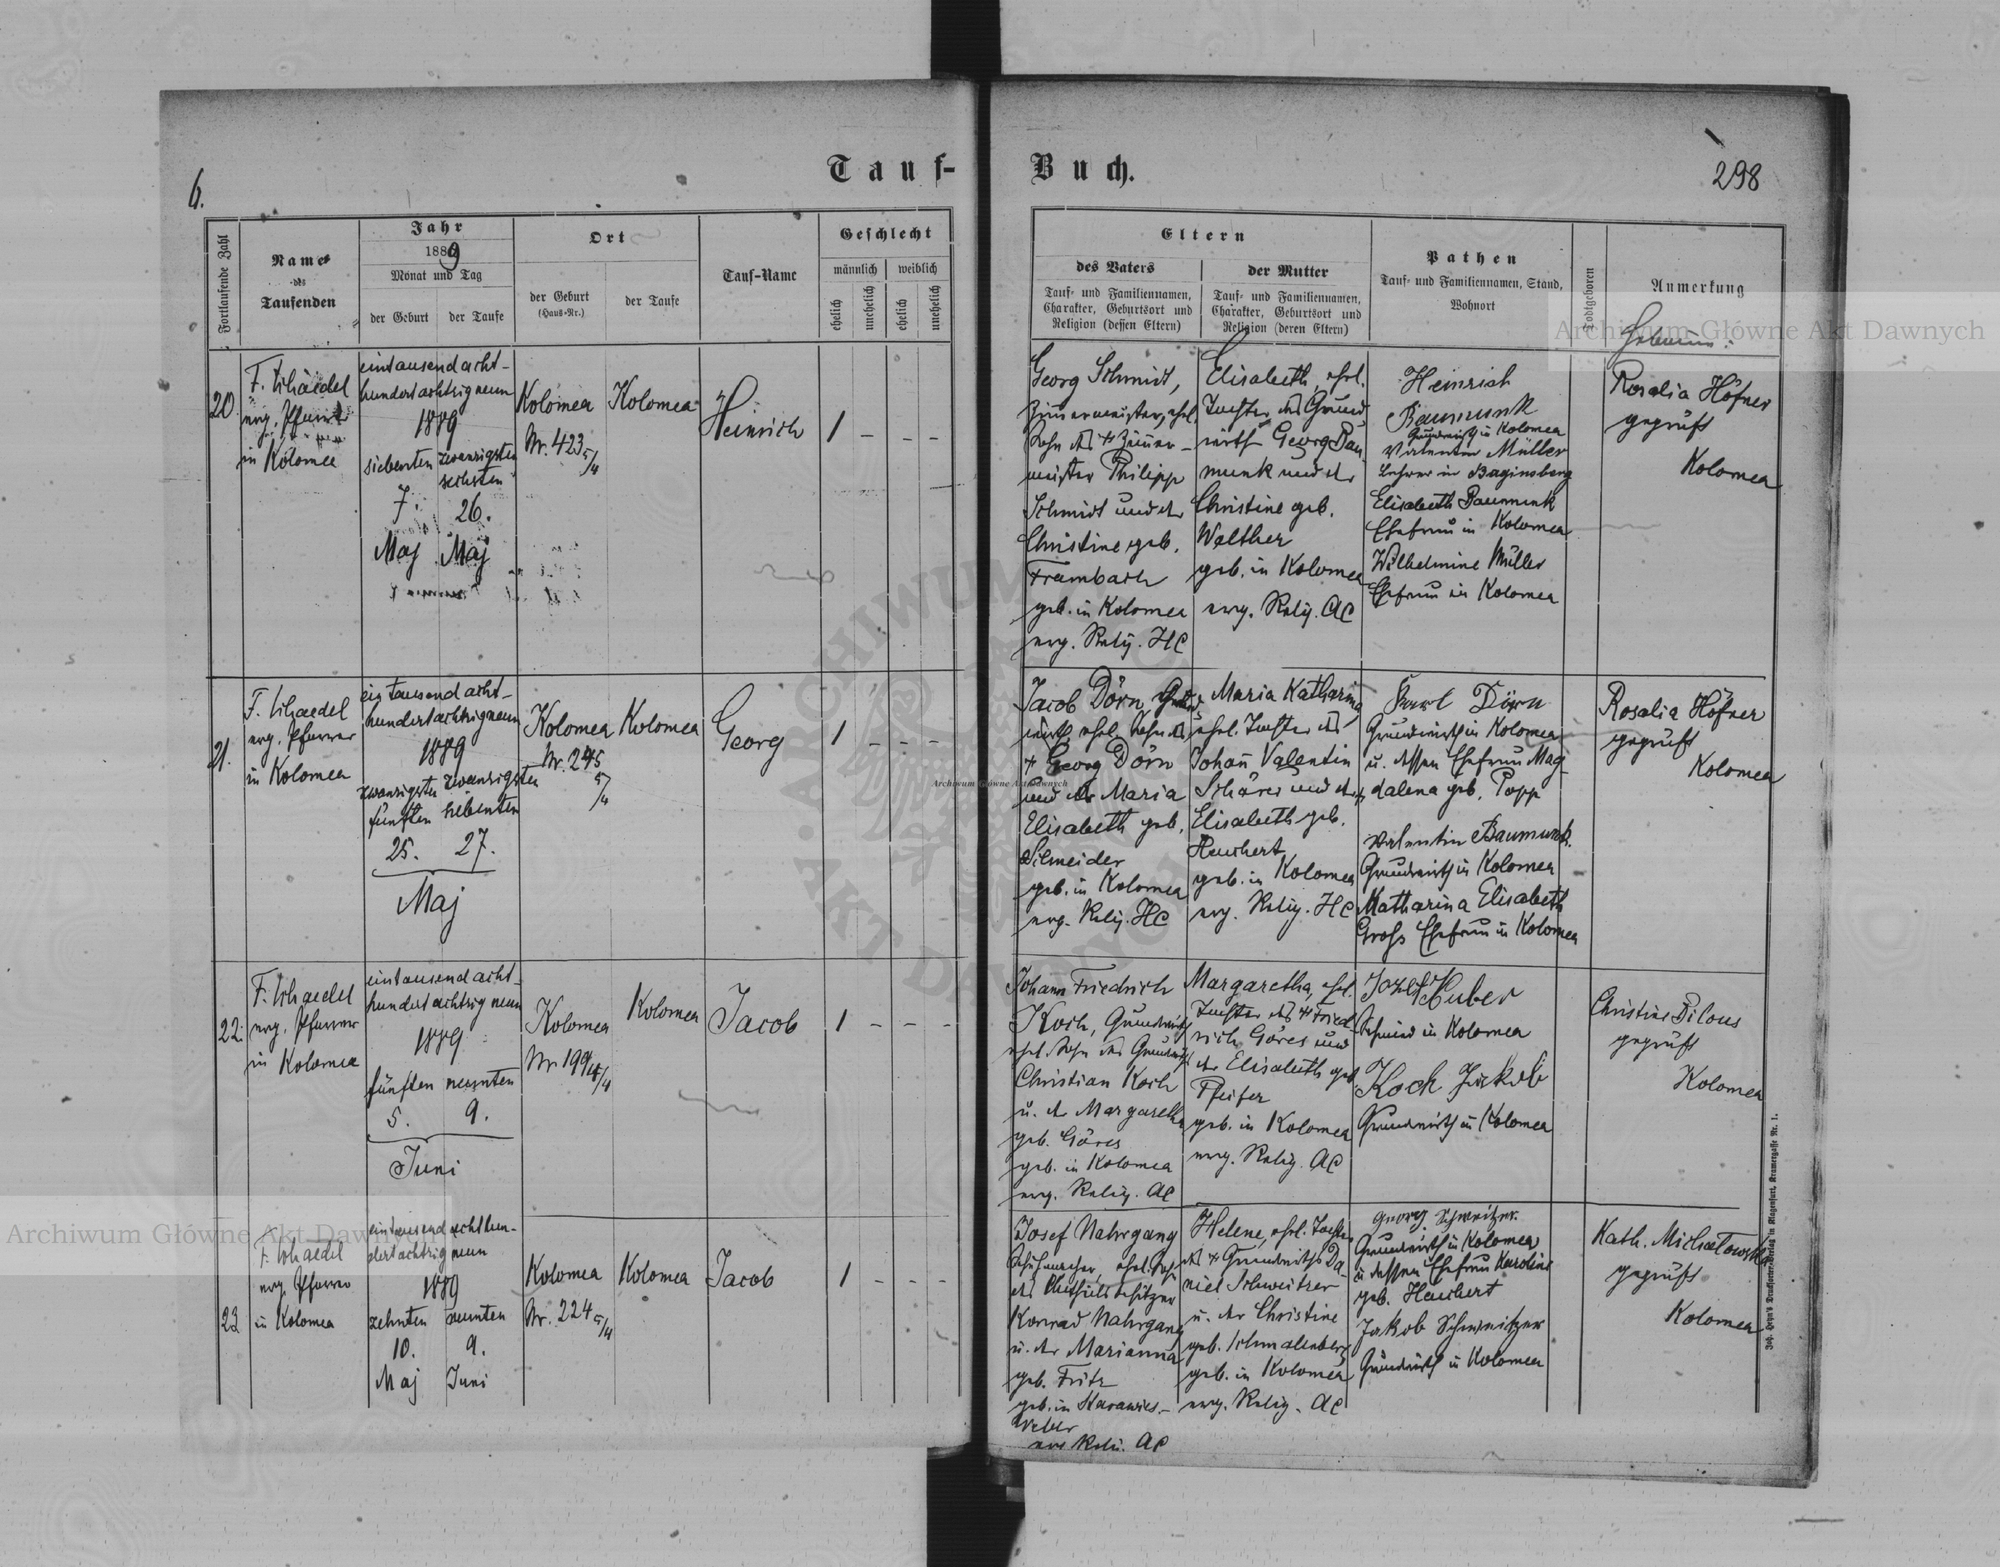 6.
Tauf-
Buch.
298
Fortlaufende Zahl
Name
des
Taufenden
Jahr
1889
Monat und Tag
der Geburt
der Taufe
Ort
der Geburt
(Haus-Nr.)
der Taufe
Tauf-Name
Geschlecht
männlich
weiblich
ehelich
unehelich
ehelich
unehelich
Eltern
des Vaters
Tauf- und Familiennamen,
Charakter, Geburtsort und
Religion (dessen Eltern)
der Mutter
Tauf- und Familiennamen,
Charakter, Geburtsort und
Religion (deren Eltern)
Pathen
Tauf- und Familiennamen, Stand,
Wohnort
Todtgeboren
Anmerkung
Hebamme:
20.
F. Schaedel
evg. Pfarrer
in Kolomea
eintausend acht-
hundertachtzigneun
1889
siebenten
7.
Maj
zwanzigsten
sechsten
26.
Maj
Kolomea
Nr. 423 5/4
Kolomea
Heinrich
1 - - -
Georg Schmidt,
Zimermeister, ehel.
Sohn des + Zimer-
meister Philipp
Schmidt und der
Christine geb.
Frambach
geb. in Kolomea
evg. Relig. HC
Elisabeth, ehel.
Tochter des Grund
wirth Georg Bau
munk und der
Christine geb.
Walther
geb. in Kolomea
evg. Relig. AC
Heinrich
Baumunk
Grundwirth in Kolomea
Valentin Müller
Lehrer in Baginsberg
Elisabeth Baumunk
Ehefrau in Kolomea
Wilhelmine Müller
Ehefrau in Kolomea
Rosalia Höfner
geprüft
Kolomea
21.
F. Schaedel
evg. Pfarrer
in Kolomea
eintausend acht-
hundertachtzigneun
1889
zwanzigsten
fünften
25.
zwanzigsten
siebenten
27.
Maj
Kolomea
Nr. 245
5/4
Kolomea
Georg
1 - - -
Jacob Dörn, Grund
wirth, ehel. Sohn des
+ Georg Dörn
und der Maria
Elisabeth geb.
Schneider
geb. in Kolomea
evg. Relig. HC
Maria Katharina
ehel. Tochter des
Johann Valentin
Schäres und der +
Elisabeth geb.
Heuchert
geb. in Kolomea
evg. Relig. HC
Karl Dörn
Grundwirth in Kolomea
u. dessen Ehefrau Mag-
dalena geb. Popp
Valentin Baumunk
Grundwirth in Kolomea
Katharina Elisabeth
Groß Ehefrau in Kolomea
Rosalia Höfner
geprüft
Kolomea
22.
F. Schaedel
evg. Pfarrer
in Kolomea
eintausend acht-
hundert achtzig neun
1889
fünften
5.
neunten
9.
Juni
Kolomea
Nr 199 4/4
Kolomea
Jacob
1 - - -
Johann Friedrich
Koch, Grundwirth
ehel. Sohn des Grundwirth
Christian Koch
u. der Margaretha
geb. Göres
geb. in Kolomea
evg. Relig. AC
Margaretha, ehel.
Tochter des + Fried-
rich Göres und
der Elisabeth geb
Pfeifer
geb. in Kolomea
evg. Relig. AC
Jozef Huber
Schmied in Kolomea
Koch Jakob
Grundwirth in Kolomea
Christine Pilous
geprüft
Kolomea
23
F. Schaedel
evg. Pfarrer
in Kolomea
eintausend achthun-
dertachtzig neun
1889
zehnten
10.
Maj
neunten
9.
Juni
Kolomea
Nr. 224 5/4
Kolomea
Jacob
1 - - -
Josef Nahrgang
Schuhmacher, ehel. Sohn
Konrad Nahrgang
u. der Marianna
geb. Fritz
evg. Relig. AC
Helene, ehel. Tochter
des + Grundwirths Da-
niel Schweitzer
u. der Christine
geb. Schmalenberg
geb. in Kolomea
evg. Relig. AC
Georg Schweitzer
Grundwirth in Kolomea
u dessen Ehefrau Karoline
geb. Heuchert
Jakob Schweitzer
Grundwirth in Kolomea
Kath. Michalowska
geprüft
Kolomea
Joh. Heyn's Druckforten-Verlag in Klagenfurt, Kramergasse Nr. 1.
Archiwum Główne Akt Dawnych
Archiwum Główne Akt Dawnych
Archiwum Główne Akt Dawnych
ARCHIWUM
AKT DAWNYCH